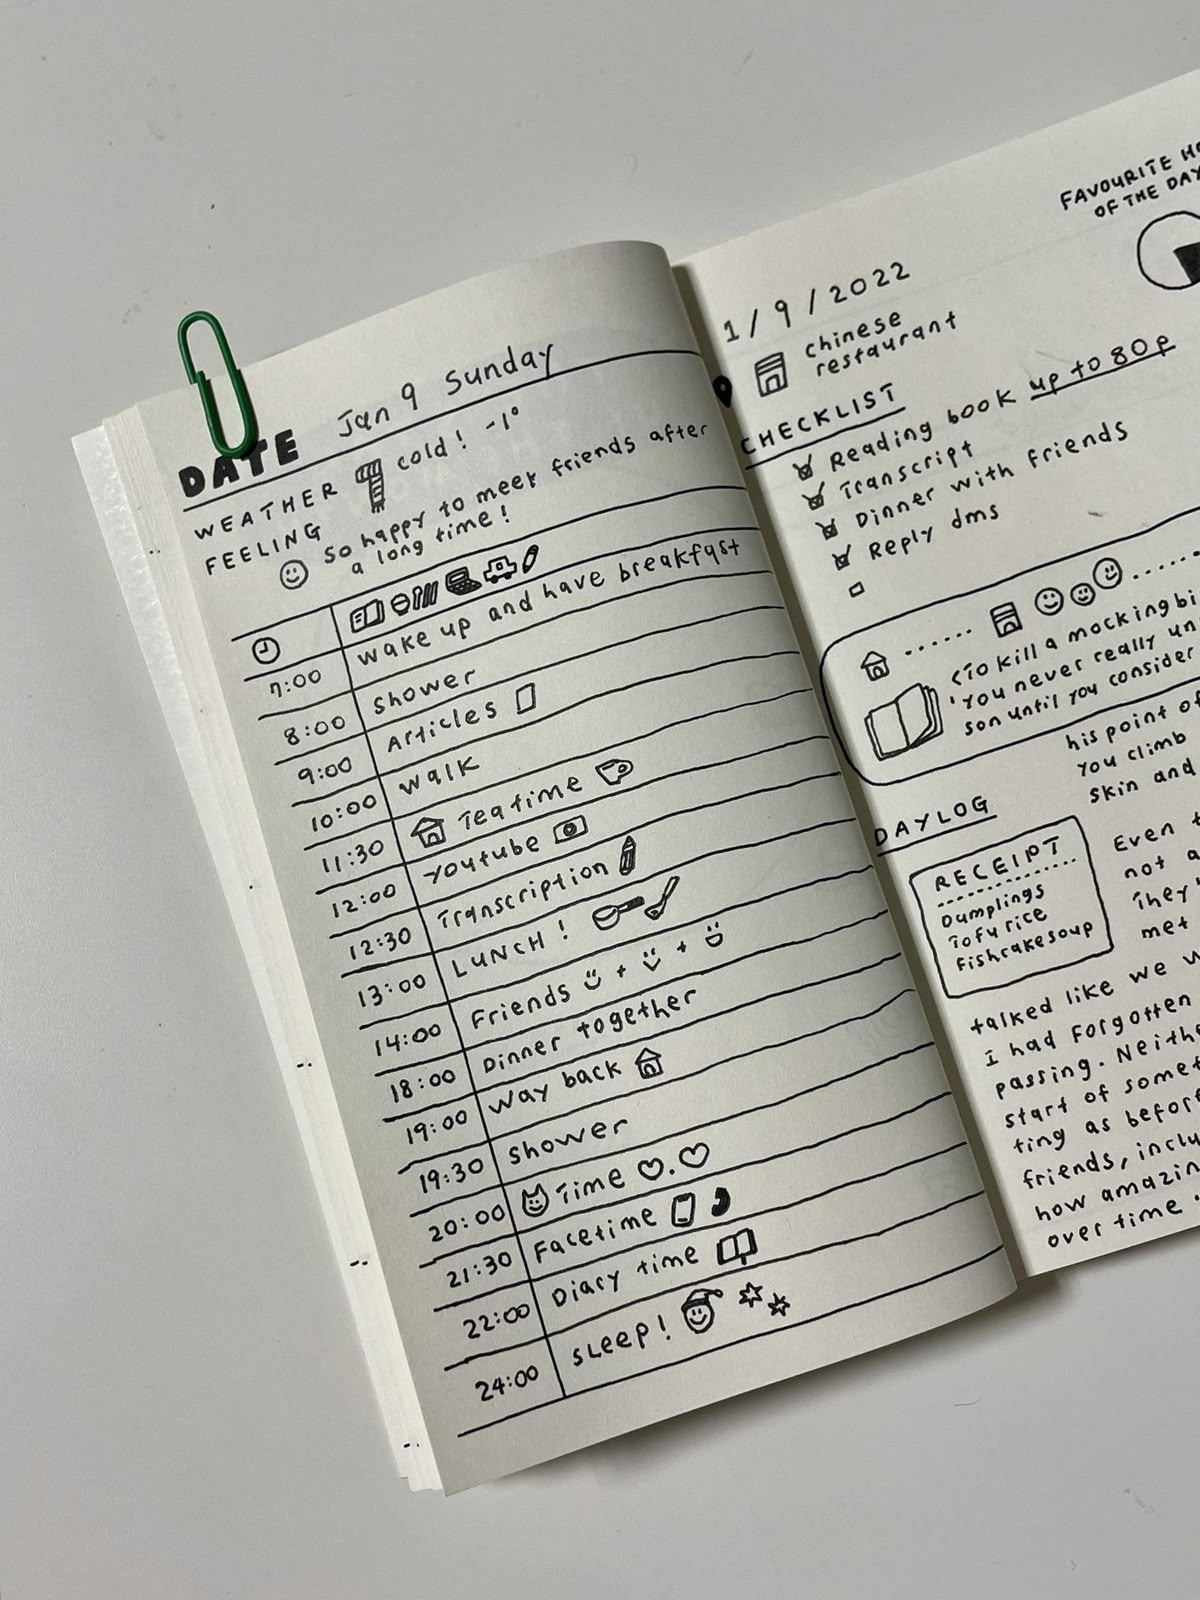 DATE Jan 9 Sunday
WEATHER cold! -1°
FEELING So happy to meet friends after
a long time!
7:00 wake up and have breakfast
8:00 shower
9:00 Articles
10:00 walk
11:30 Teatime
12:00 youtube
12:30 Transcription
13:00 LUNCH!
14:00 Friends + +
18:00 Dinner together
19:00 way back
19:30 shower
20:00 Time
21:30 Facetime
22:00 Diary time
24:00 SLeep!
FAVOURITE
OF THE DAY
1/9/2022
chinese
restaurant
CHECKLIST
Reading book up to 80p
Transcript
Dinner with friends
Reply dms
<To kill a mocking
'You never really
son until you consider
his point of
you climb
skin and
DAYLOG
RECEIPT
Dumplings
Tofu rice
Fishcakesoup
Even
not
They'
met
talked like we
I had forgotten
passing.
start of
ting as
friends,
how
over time.